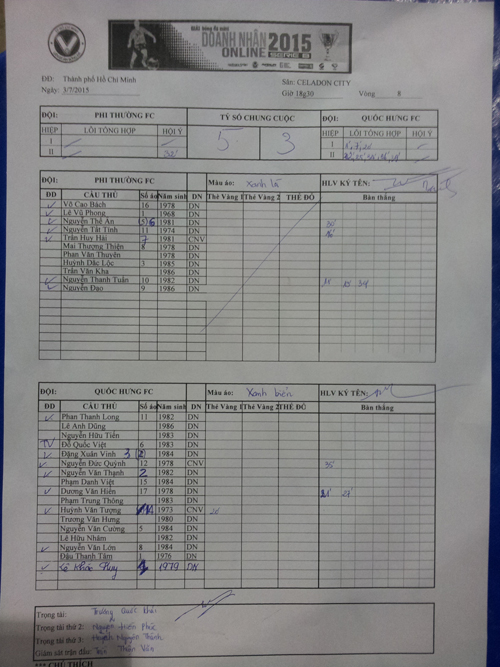 GIẢI bóng đá mini
DOANH NHÂN
ONLINE 2015
ĐD: Thành phố Hồ Chí Minh
Sân: CELADON CITY
Ngày: 3/7/2015
Giờ 18g30 Vòng 8
ĐỘI: PHI THƯỜNG FC TỶ SỐ CHUNG CUỘC ĐỘI: QUỐC HƯNG FC
HIỆP LỖI TỔNG HỢP HỘI Ý 5 3 HIỆP LỖI TỔNG HỢP HỘI Ý
I I
II II
ĐỘI: PHI THƯỜNG FC Màu áo: Xanh lá HLV KÝ TÊN:
ĐD CẦU THỦ Số áo Năm sinh DN Thẻ Vàng 1 Thẻ Vàng 2 THẺ ĐỎ Bàn thắng
Võ Cao Bách 16 1978 DN
Lê Vũ Phong 1 1968 DN
Nguyễn Thế Ân 6 1981 DN
Nguyễn Tất Tính 11 1974 DN
Trần Huy Hải 7 1981 CNV
Mai Thượng Thiện 8 1978 DN
Phan Văn Thuyên 1978 DN
Huỳnh Đắc Lộc 3 1985 DN
Trần Văn Kha 1986 DN
Nguyễn Thanh Tuấn 10 1982 DN 34
Nguyễn Đạo 9 1986 DN
ĐỘI: QUỐC HƯNG FC Màu áo: Xanh biển HLV KÝ TÊN:
ĐD CẦU THỦ Số áo Năm sinh DN Thẻ Vàng 1 Thẻ Vàng 2 THẺ ĐỎ Bàn thắng
Phan Thanh Long 11 1982 DN
Lê Anh Dũng 1986 DN
Nguyễn Hữu Tiến 1983 DN
TV Đỗ Quốc Việt 6 1983 DN
Đặng Xuân Vinh 3 1984 DN
Nguyễn Đức Quỳnh 12 1978 CNV 35'
Nguyễn Văn Thạnh 2 1982 DN
Phạm Danh Việt 15 1984 DN
Dương Văn Hiền 17 1978 DN 27'
Phạm Trung Thông 1983 DN
Huỳnh Văn Tượng 1973 CNV
Trương Văn Hưng 1980 DN
Nguyễn Văn Cường 5 1984 DN
Lê Hữu Nhâm 1982 DN
Nguyễn Văn Lớn 8 1984 DN
Đậu Thanh Tâm 1 1976 DN
Huy 1979 DN
Trọng tài: Trương Quốc
Trọng tài thứ 2: Nguyễn Hiền Phúc
Trọng tài thứ 3: Huỳnh Nguyên Thành
Giám sát trận đấu: Trần Viên
*** CHÚ THÍCH